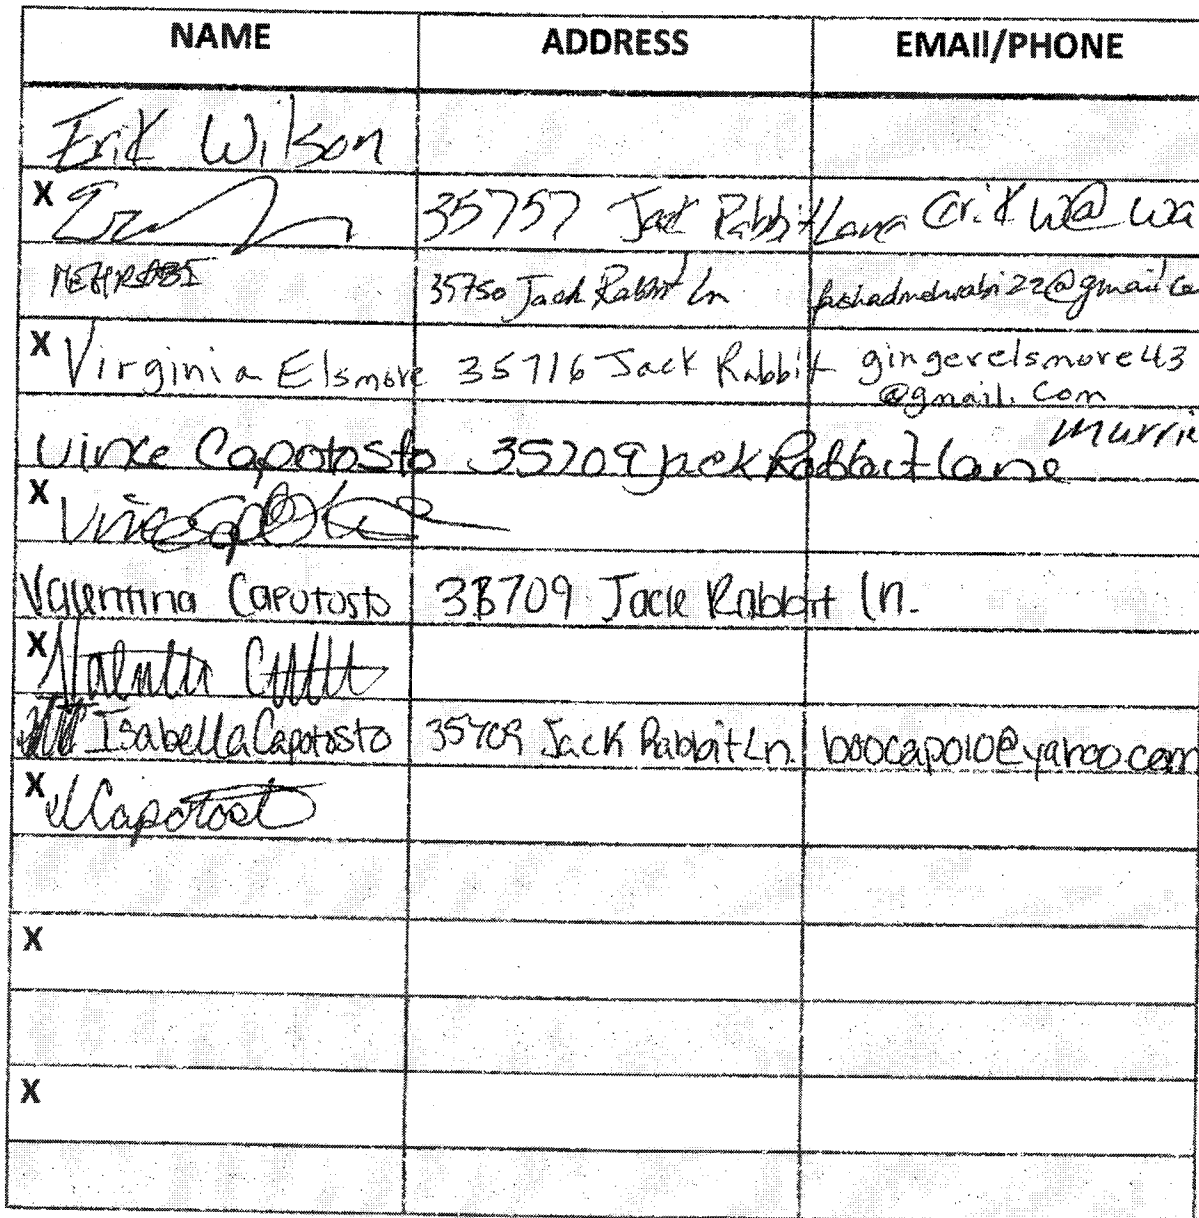 NAME ADDRESS EMAIl/PHONE
Erik Wilson
X 35757 Jack Rabbit Lane erikw@wa
MEHRABI 35750 Jack Rabbit Ln fashadmehrabi22@gmail.co
X Virginia Elsmore 35716 Jack Rabbit gingerelsmore43
@gmail.com
Murrie
Vince Capotosto 35709 Jack Rabbait Lane
X
Valentina Capotosto 35709 Jack Rabbit Ln.
X
Isabella Capotosto 35709 Jack Rabbit Ln. boocapo10@yahoo.com
X Capotosto
X
X